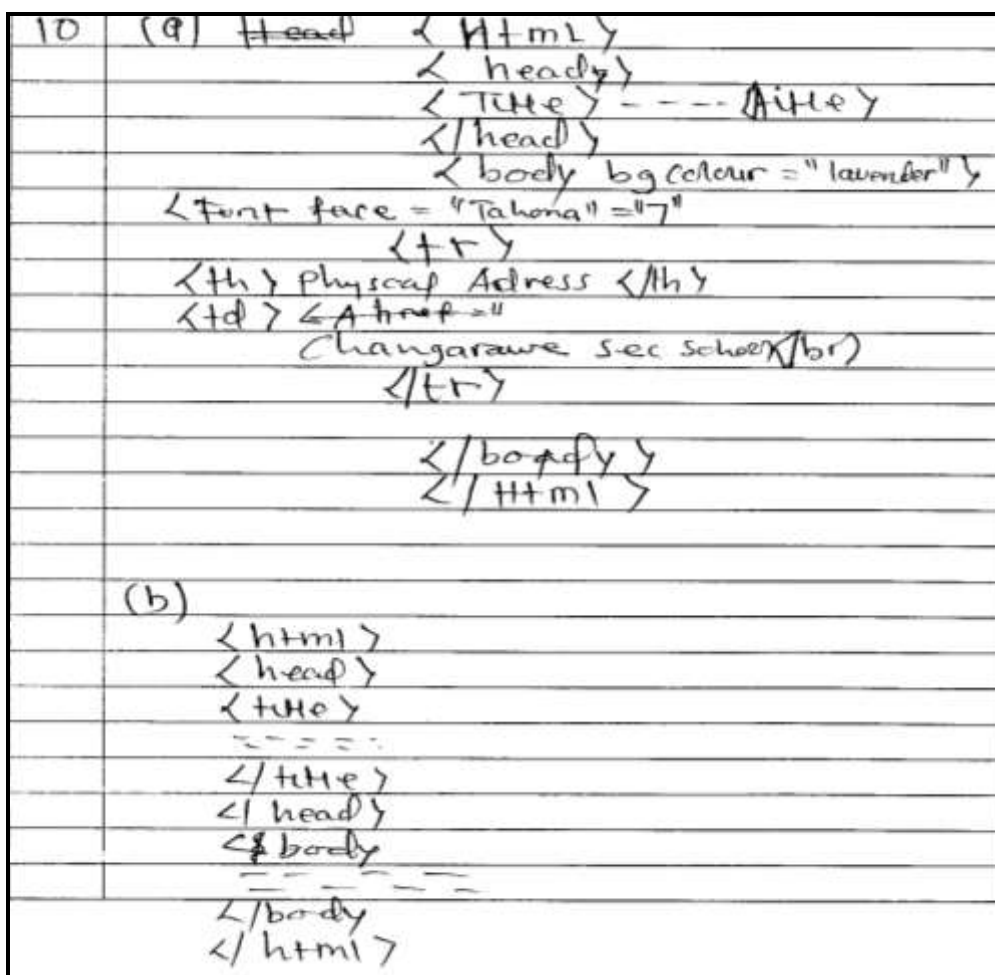 10 (a) Head < Html >
< heady>
< Title > ---- </title >
</head >
< body bg colour = "lavender" >
<Font face = "Tahona" ="7"
<tr >
<th > Physcal Adress </th >
<td > <A href ="
Changarawe sec school</br>
</tr>
</boady >
</ Html >
(b)
< html >
< head >
< title >
-----
</ title >
</ head >
< body
-----
</body
</ html >